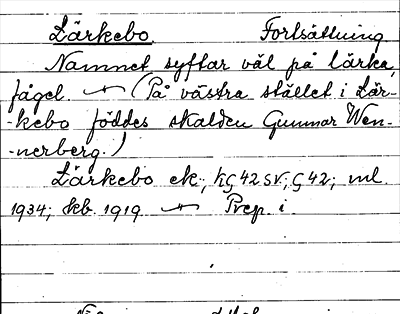 Lärkebo. Fortsättning
Namnet syftar väl på lärka,
fågel. — (På västra stället i Lär-
-kebo föddes skalden Gunnar Wen-
-nerberg.)
Lärkebo ek.; kG42SV; G42; ml.
1934; kb. 1919 — Prep. i.